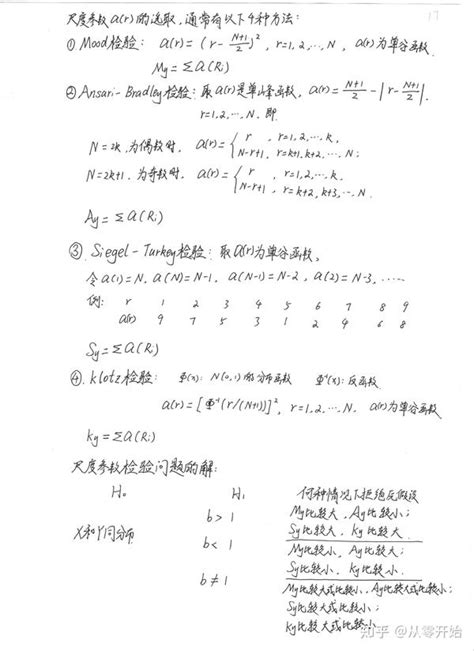 17
尺度参数a(r)的选取,通常有以下4种方法:
① Mood检验: a(r) = (r - (N+1)/2)², r=1,2,…,N, a(r)为单谷函数
My = Σa(Ri)
② Ansari-Bradley检验: 取a(r)是单峰函数, a(r) = (N+1)/2 - |r - (N+1)/2|,
r=1,2,…,N, 即
N=2k, 为偶数时, a(r) = { r, r=1,2,…,k,
N-r+1, r=k+1,k+2,…,N;
N=2k+1, 为奇数时, a(r) = { r, r=1,2,…,k,
N-r+1, r=k+2,k+3,…,N.
Ay = Σa(Ri)
③ Siegel-Turkey检验: 取a(r)为单谷函数,
令a(1)=N, a(N)=N-1, a(N-1)=N-2, a(2)=N-3, ……
例: r 1 2 3 4 5 6 7 8 9
a(r) 9 7 5 3 1 2 4 6 8
Sy = Σa(Ri)
④ klotz检验: Φ(x): N(0,1)的分布函数 Φ⁻¹(x): 反函数
a(r) = [Φ⁻¹(r/(N+1))]², r=1,2,…N, a(r)为单谷函数
Ky = Σa(Ri)
尺度参数检验问题的解:
H₀ H₁ 何种情况下拒绝原假设
b > 1 My比较大, Ay比较小;
Sy比较大, Ky比较大
X和Y同分布
b < 1 My比较小, Ay比较大;
Sy比较小, Ky比较小.
b ≠ 1 My比较大或比较小, Ay比较大或比较小;
Sy比较大或比较小;
Ky比较大或比较小
知乎 @从零开始